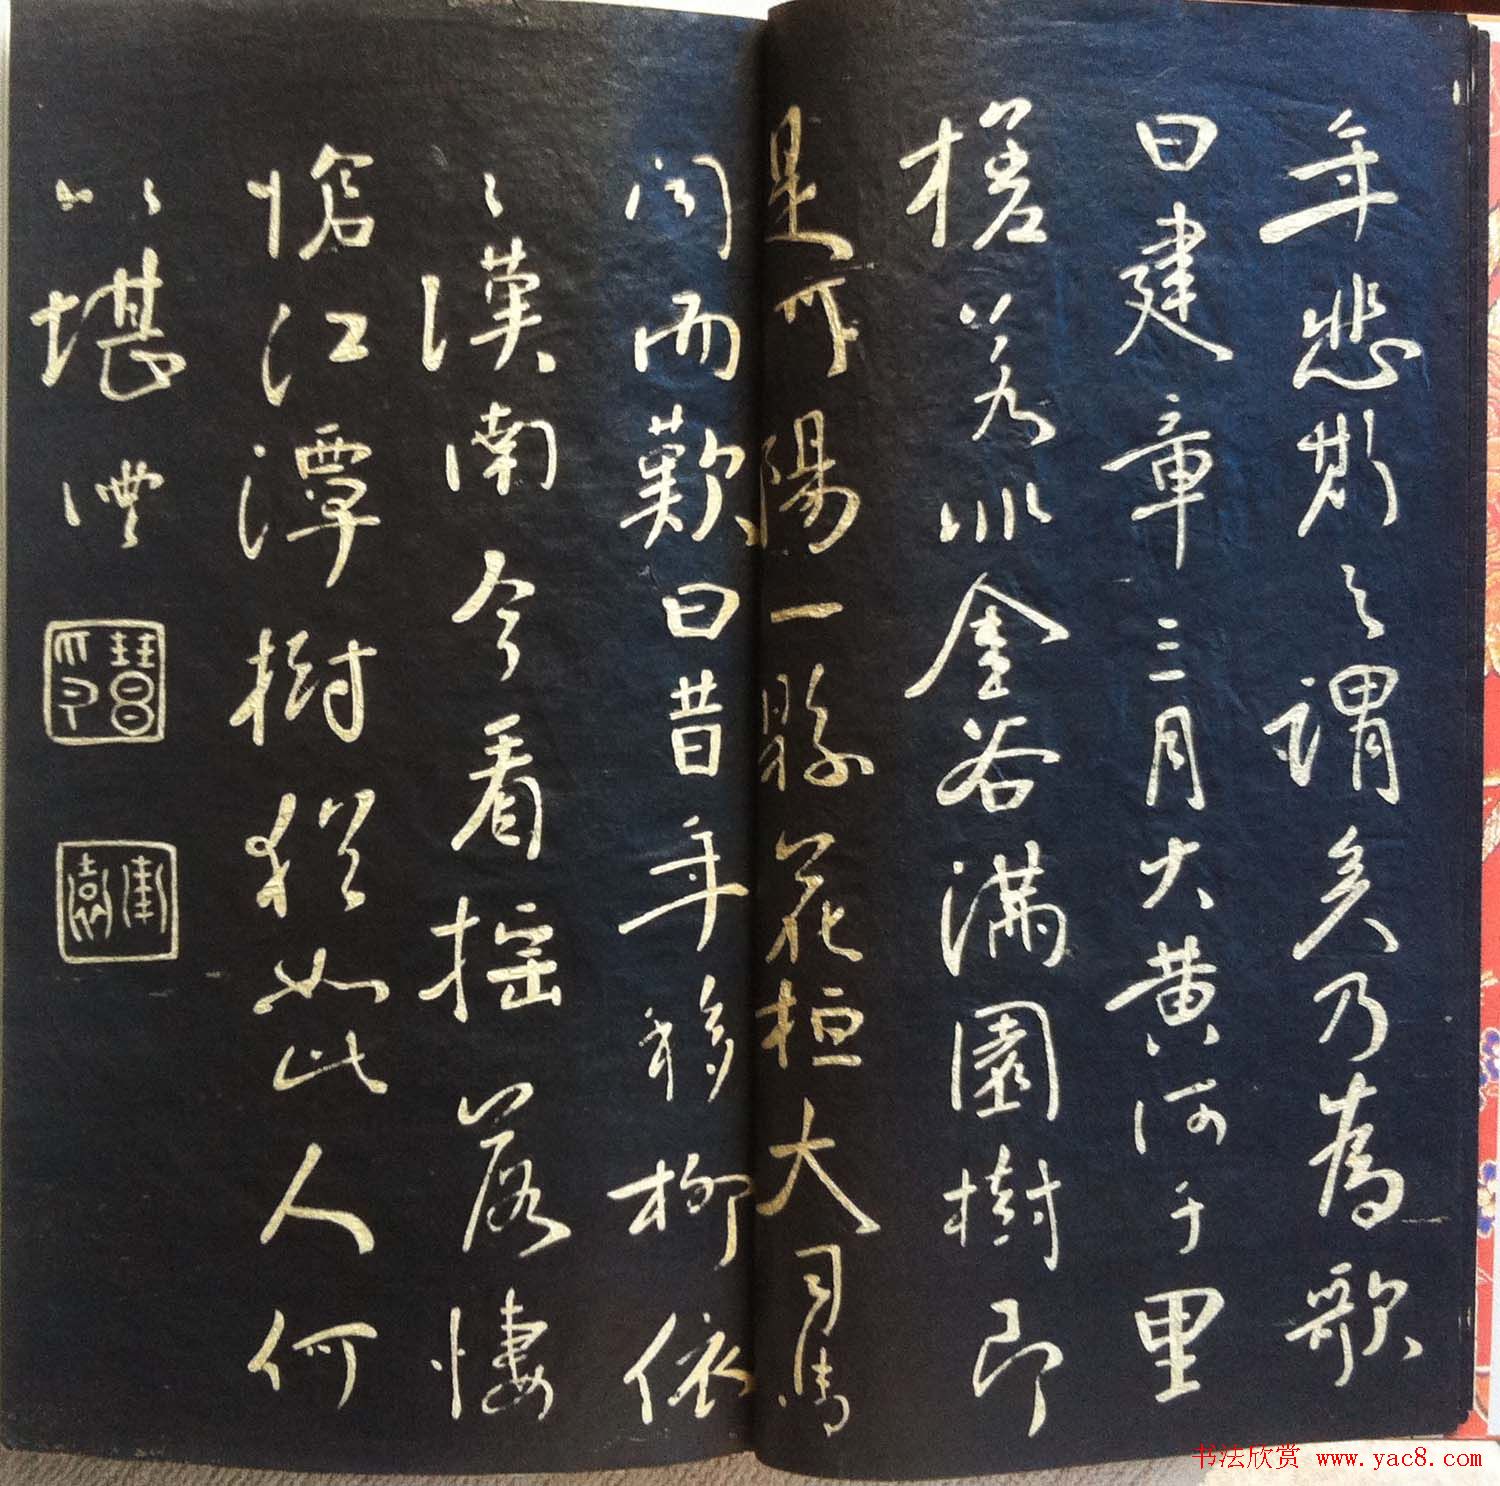 年悲斯之謂矣乃為歌
曰建章三月火黃河千里
槎若非金谷滿園樹即
是河陽一縣花桓大司馬
聞而歎曰昔年移柳依
々漢南今看搖落悽
愴江潭樹猶如此人何
以堪
书法欣赏 www.yac8.com